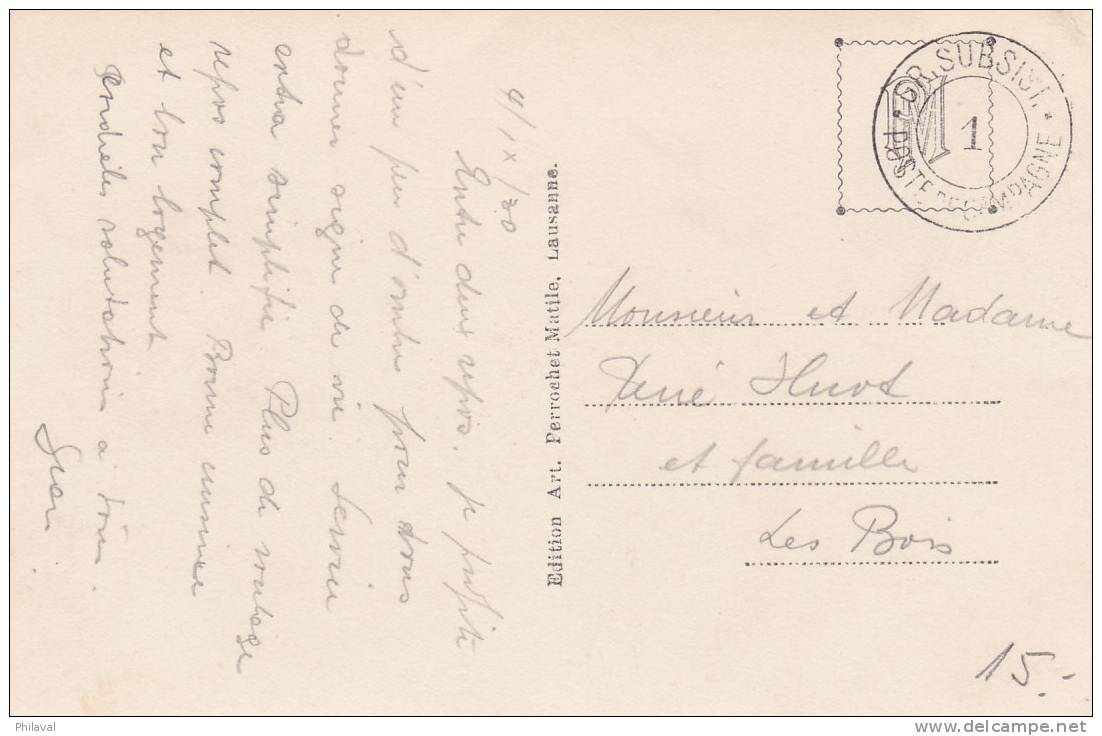 4/IX/30
Entre deux repos, je profite
d'un peu d'ombre pour vous
donner signe de vie. Service
extra simplifié Plus de
repos complet. Bonne cuisine
et bon logement
salutations à tous.
Edition Art. Perrochet Matile, Lausanne.
GR. SUBSIST.
1
POSTE DE CAMPAGNE
PM
Monsieur et Madame
René Huot
et famille
Les Bois
15.-
Philaval
www.delcampe.net